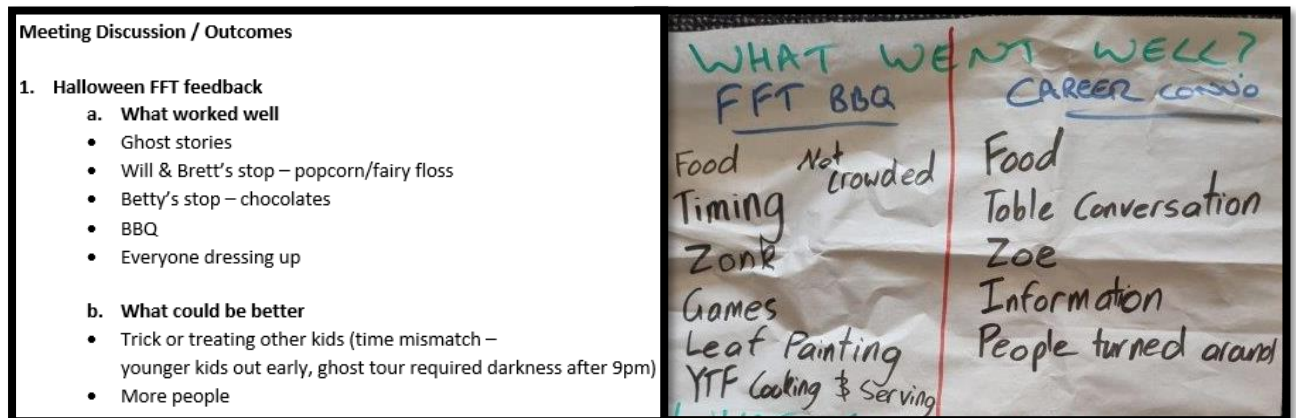 Meeting Discussion / Outcomes
1. Halloween FFT feedback
a. What worked well
• Ghost stories
• Will & Brett's stop – popcorn/fairy floss
• Betty's stop – chocolates
• BBQ
• Everyone dressing up
b. What could be better
• Trick or treating other kids (time mismatch –
younger kids out early, ghost tour required darkness after 9pm)
• More people
WHAT WENT WELL?
FFT BBQ
Food Not crowded
Timing
Zonk
Games
Leaf Painting
YTF Cooking & Serving
CAREER CONVO
Food
Table Conversation
Zoe
Information
People turned around